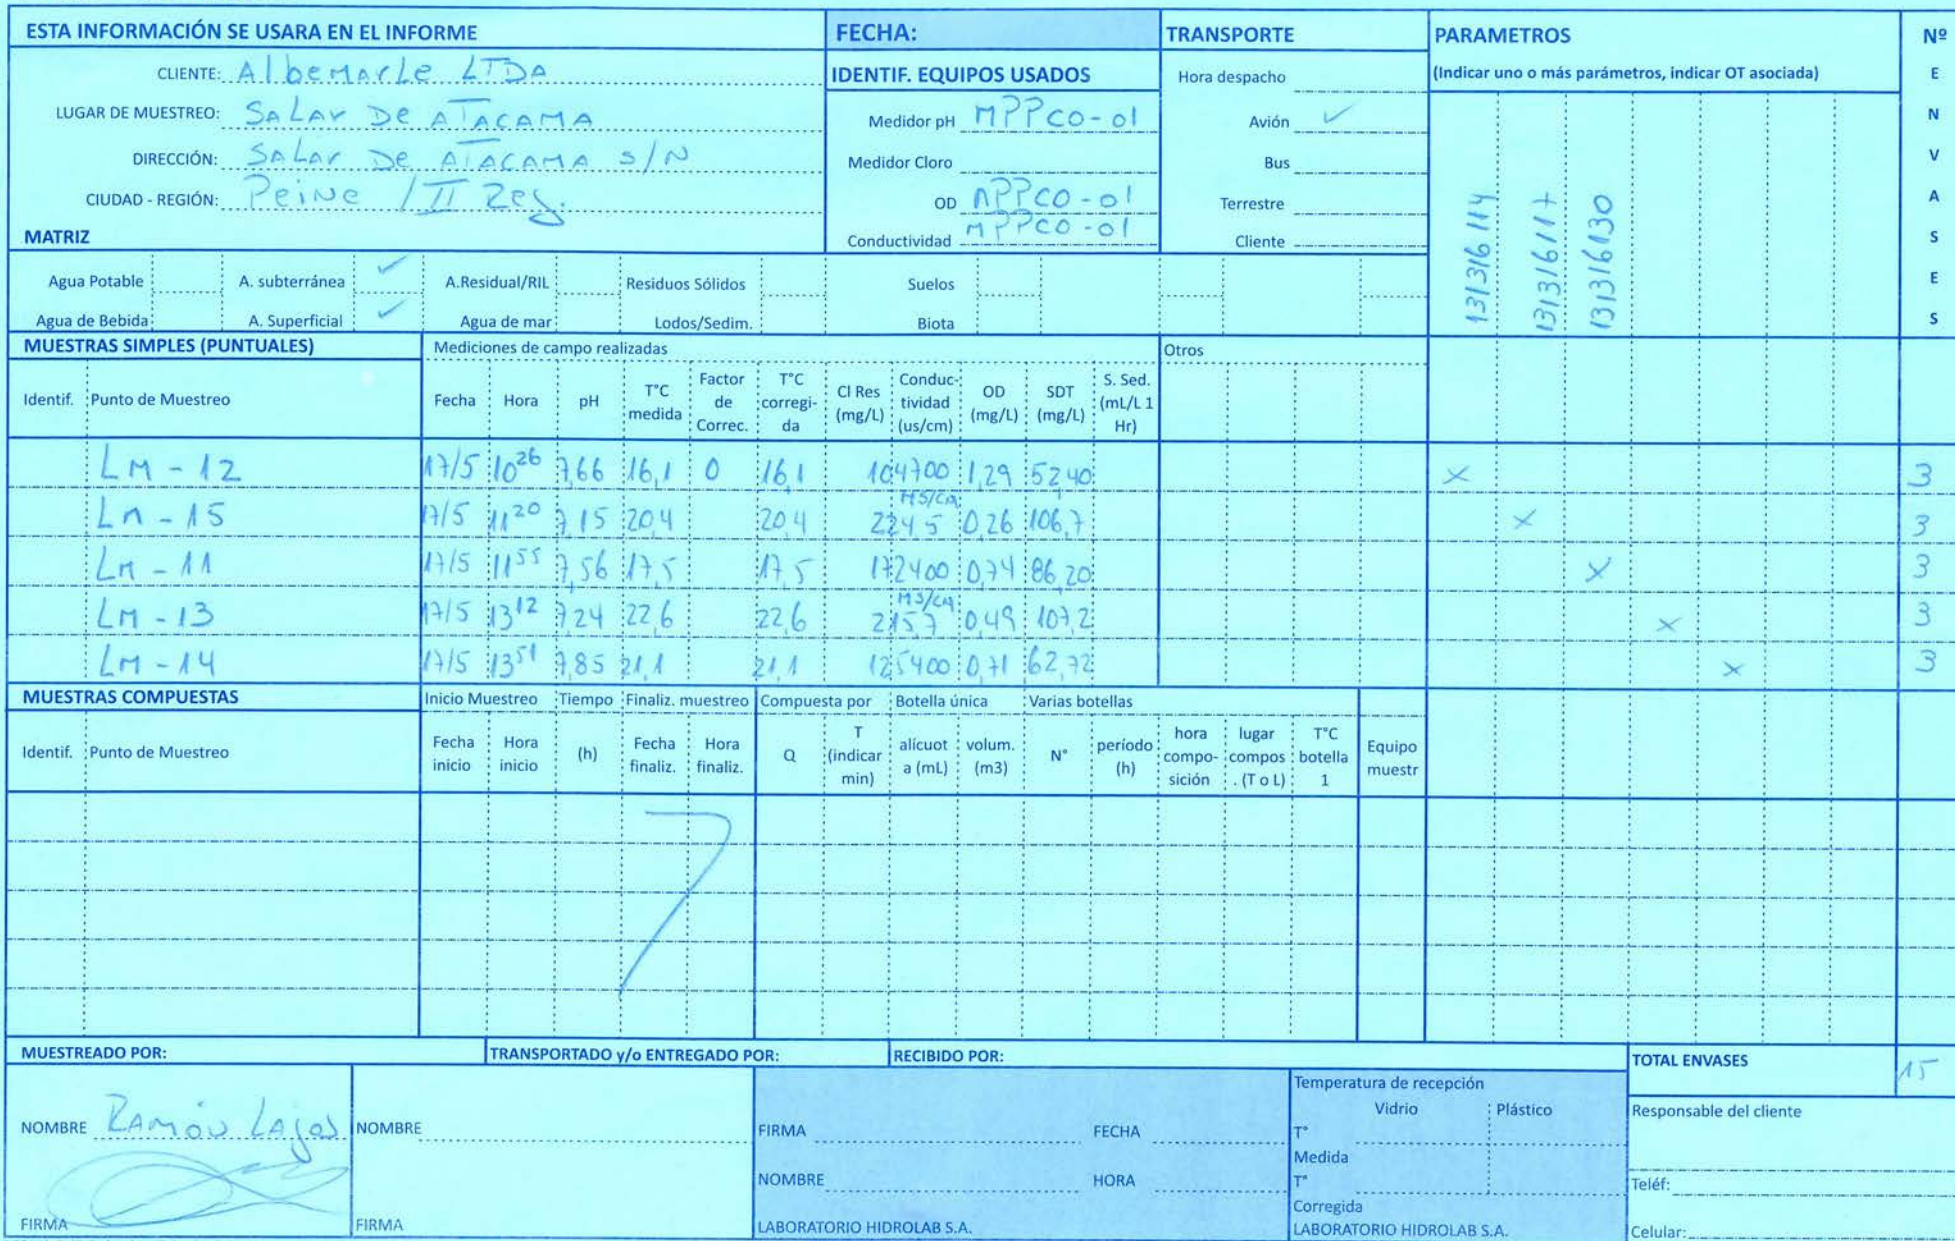 ESTA INFORMACIÓN SE USARA EN EL INFORME
CLIENTE: Albemarle LTDA
LUGAR DE MUESTREO: SALAR DE ATACAMA
DIRECCIÓN: SALAR DE ATACAMA S/N
CIUDAD - REGIÓN: Peine / II Reg.
FECHA:
IDENTIF. EQUIPOS USADOS
Medidor pH MPPCO-01
Medidor Cloro
OD MPPCO-01
Conductividad MPPCO-01
TRANSPORTE
Hora despacho
Avión ✓
Bus
Terrestre
Cliente
PARAMETROS
(Indicar uno o más parámetros, indicar OT asociada)
131316114
131316117
131316130
Nº
E
N
V
A
S
E
S
MATRIZ
Agua Potable A. subterránea ✓ A.Residual/RIL Residuos Sólidos Suelos
Agua de Bebida A. Superficial ✓ Agua de mar Lodos/Sedim. Biota
MUESTRAS SIMPLES (PUNTUALES) Mediciones de campo realizadas Otros
Identif. Punto de Muestreo Fecha Hora pH T°C medida Factor de Correc. T°C corregi-da Cl Res (mg/L) Conduc-tividad (us/cm) OD (mg/L) SDT (mg/L) S. Sed. (mL/L 1 Hr)
LM - 12 17/5 10 26 7,66 16,1 0 16,1 104700 1,29 52,40 x 3
MS/CM
LM - 15 17/5 11 20 7,15 20,4 20,4 224,5 0,26 106,7 x 3
LM - 11 17/5 11 55 7,56 17,5 17,5 172400 0,74 86,20 x 3
MS/CM
LM - 13 17/5 13 12 7,24 22,6 22,6 215,7 0,49 107,2 x 3
LM - 14 17/5 13 51 7,85 21,1 21,1 125400 0,71 62,72 x 3
MUESTRAS COMPUESTAS Inicio Muestreo Tiempo Finaliz. muestreo Compuesta por Botella única Varias botellas
Identif. Punto de Muestreo Fecha inicio Hora inicio (h) Fecha finaliz. Hora finaliz. Q T (indicar min) alícuot a (mL) volum. (m3) N° período (h) hora compo-sición lugar compos . (T o L) T°C botella 1 Equipo muestr
MUESTREADO POR:
NOMBRE Ramón Lagos
FIRMA
TRANSPORTADO y/o ENTREGADO POR:
NOMBRE
FIRMA
RECIBIDO POR:
FIRMA FECHA
NOMBRE HORA
LABORATORIO HIDROLAB S.A.
Temperatura de recepción
Vidrio Plástico
T°
Medida
T°
Corregida
LABORATORIO HIDROLAB S.A.
TOTAL ENVASES 15
Responsable del cliente
Teléf:
Celular: